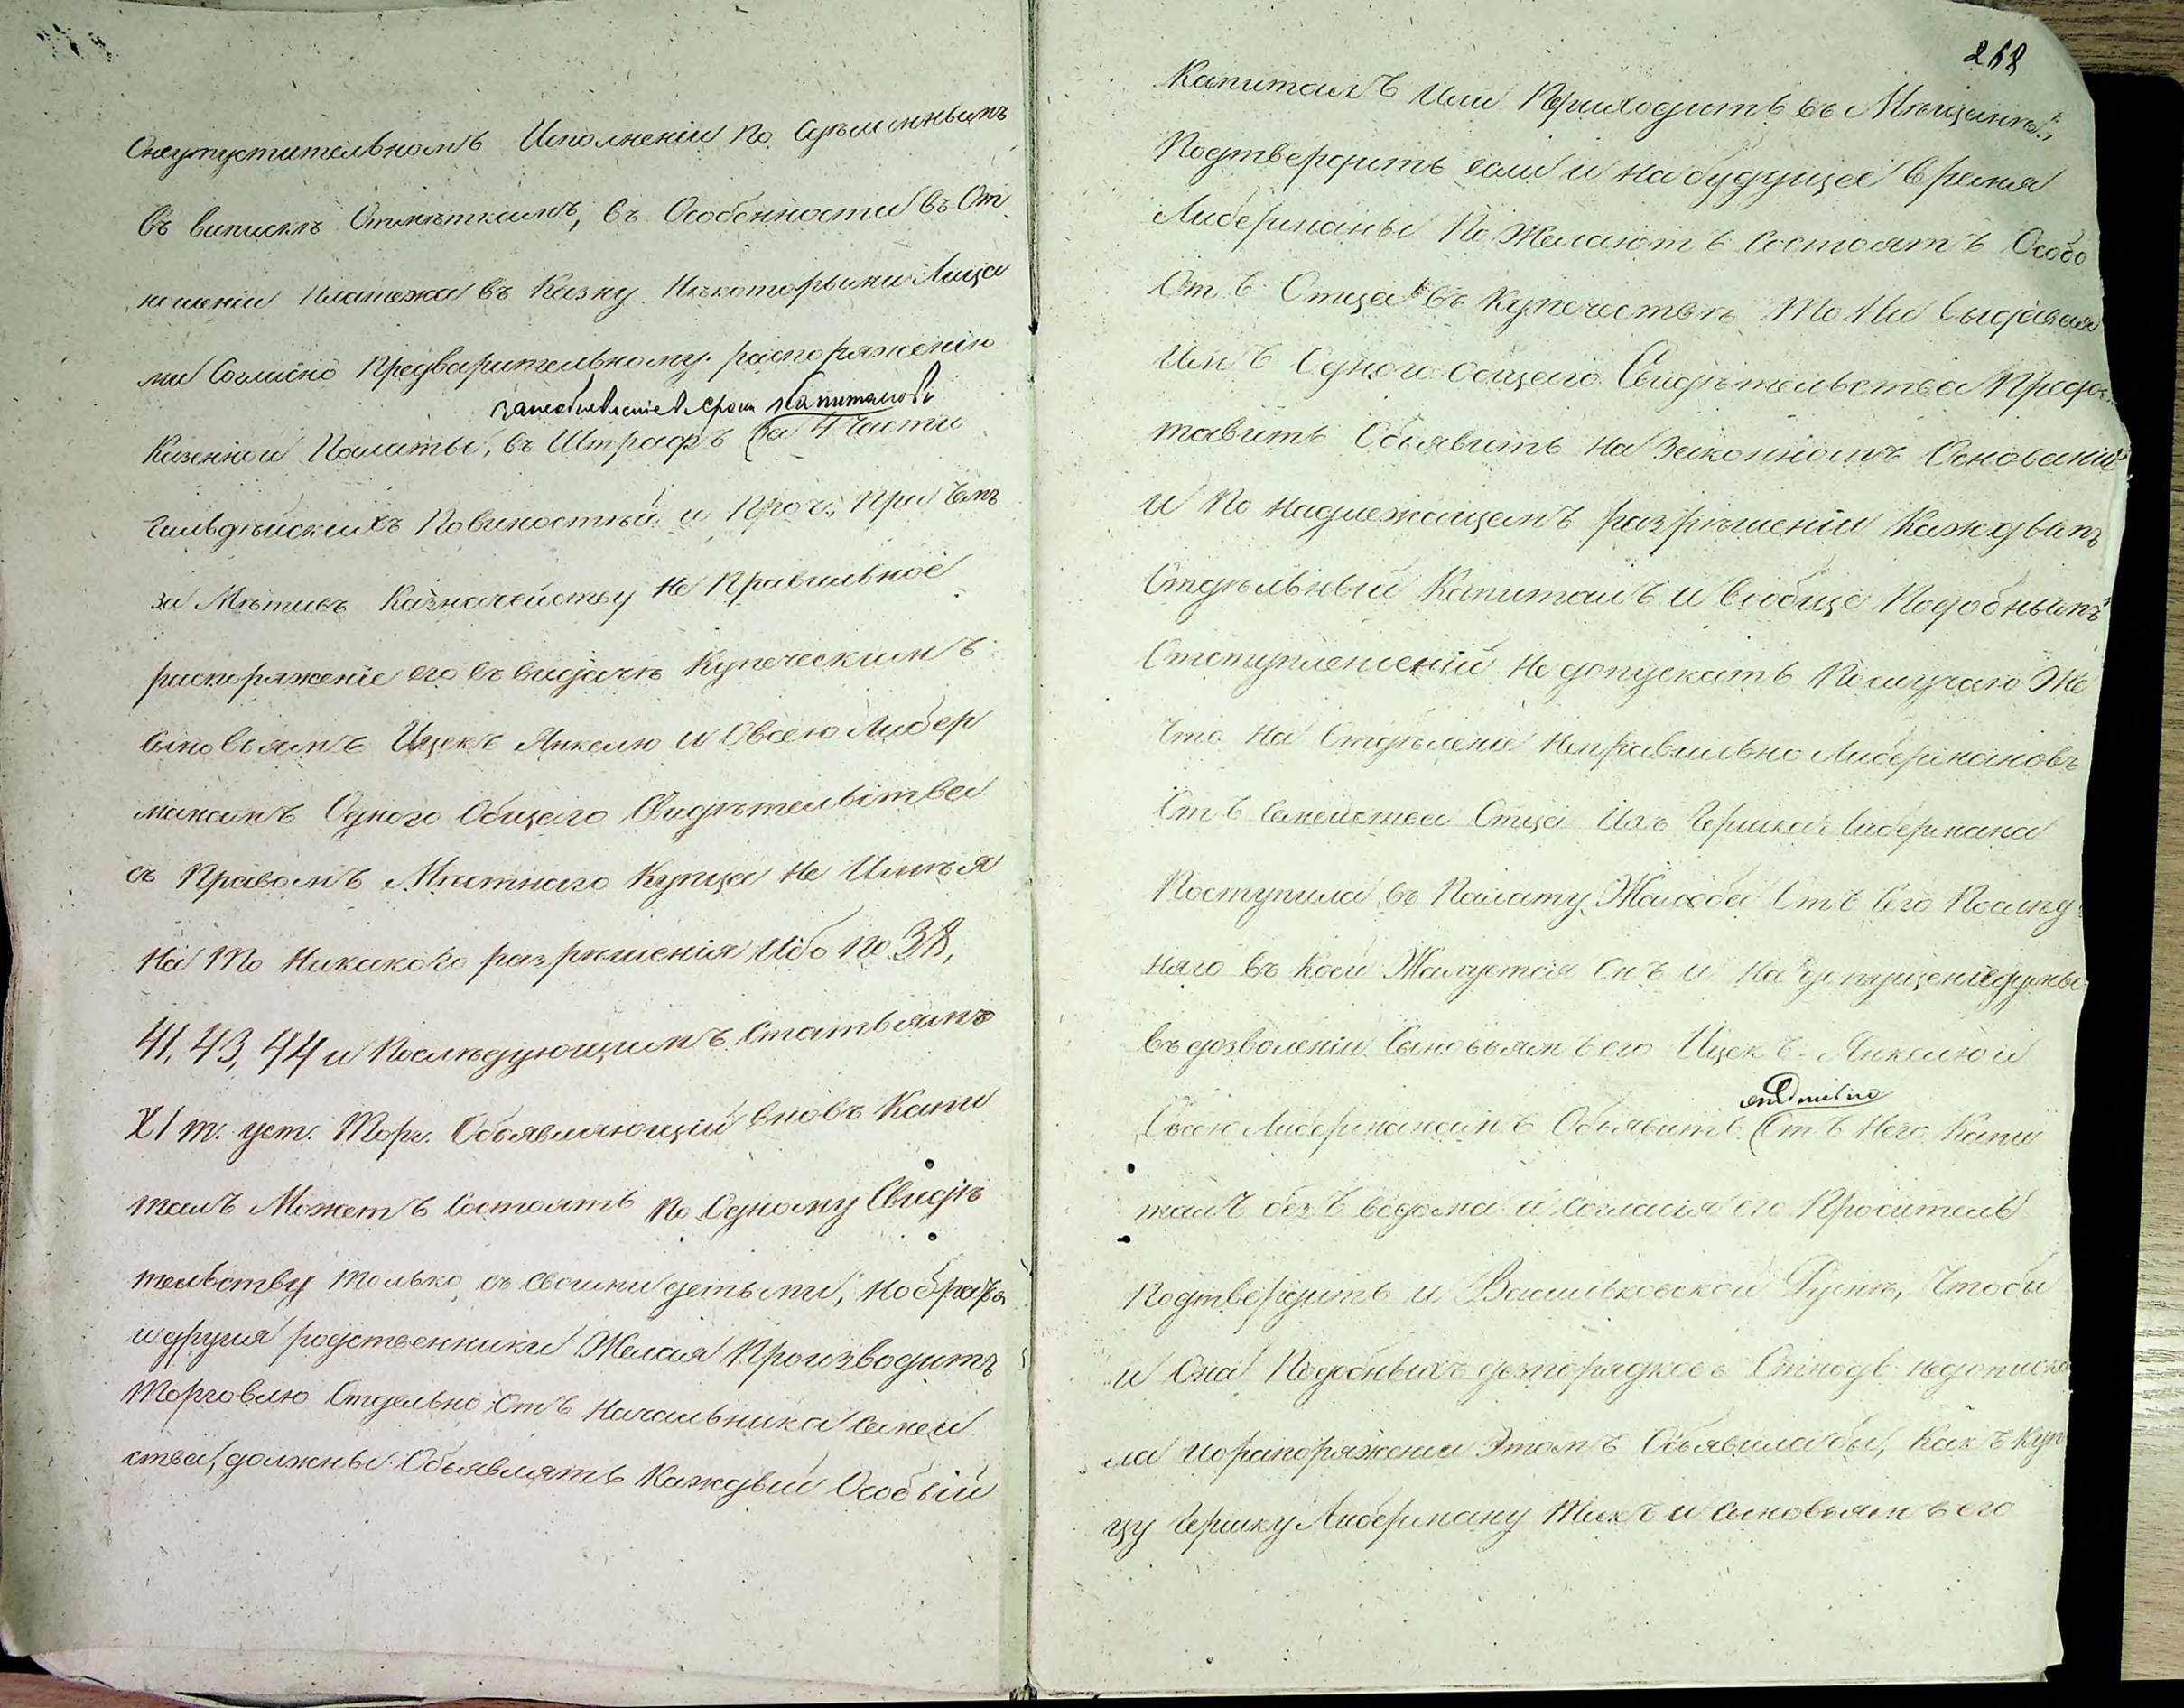 Онеупустительномъ Исполненіи по Сдѣланнымъ
въ выпискѣ Отмѣткамъ, въ Особенности въ От
ношеніи платежа въ Казну Нѣкоторыми Лица
ми Согласно Предварительному распоряженію
за необъявленіе в срокъ капиталовъ
Казенной Палаты, въ Штрафъ (за 4 части
Гильдѣйскихъ Повиностѣй и проч., При Чемъ
за Мѣтивъ Казначейству Не Правильное
распоряженіе его въ выдачѣ Купеческимъ
Сыновьямъ Ицекъ Янкелю и Овсею Либер
манамъ Одного Общаго Свидѣтельства
съ Правомъ Мѣстнаго Купца Не Имѣя
На То Никакого разрѣшенія Ибо по 38,
41, 43, 44 и Послѣдующимъ Статьямъ
XI т. уст. Торг. Объявляющій вновь Капи
талъ Можетъ Состоять по Одному Свидѣ
тельству только съ своими детьми, но братья
и другія родственники Желая Производить
Торговлю Отдельно Отъ Начальника Семей
ства, должны Объявлять Каждый Особый
268
Капиталъ Или Приходить въ Мѣщане,
Подтвердить если и на будущее время
Либерманы Пожелаютъ Состоять Особо
Отъ Отца въ Купечествѣ То Не выдавая
Имъ Одного общаго Свидѣтельства Предос
тавить Объявить На Законномъ Основаніи
и По надлежащемъ разрѣшеніи Каждымъ
Отдѣльный Капиталъ и Вообще Подобнымъ
Отступленіий Не допускать По случаю Же
Что На Отдѣленіе Неправильно Либермановъ
Отъ Семейства Отца Ихъ Гершка Либермана
Поступила въ Палату Жалоба Отъ Сего Послѣд
няго въ Коей Жалуется Онъ и На допущеніе думы
въ дозволеніи Сыновьямъ его Ицекъ-Янкелю и
отдѣльно
Овсею Либерманамъ Объявить (Отъ Него Капи
талъ безъ ведома и Согласія его Проситель
Подтвердить и Васильковской Думѣ, Чтобы
и Она Подобныхъ безпорядковъ Отнюдь недопуска
ла и о распоряженіи Этомъ Объявила бы, Какъ Куп
цу Гершку Либерману Такъ и Сыновьямъ его